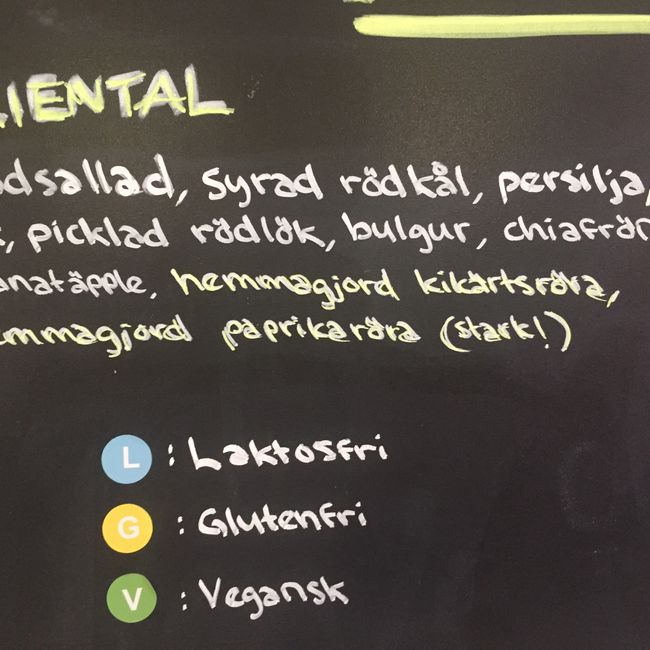 IENTAL
dsallad, syrad rödkål, persilja,
, picklad rödlök, bulgur, chiafrön
anatäpple, hemmagjord kikärtsröra,
mmagjord paprikaröra (stark!)
L : Laktosfri
G : Glutenfri
V : Vegansk